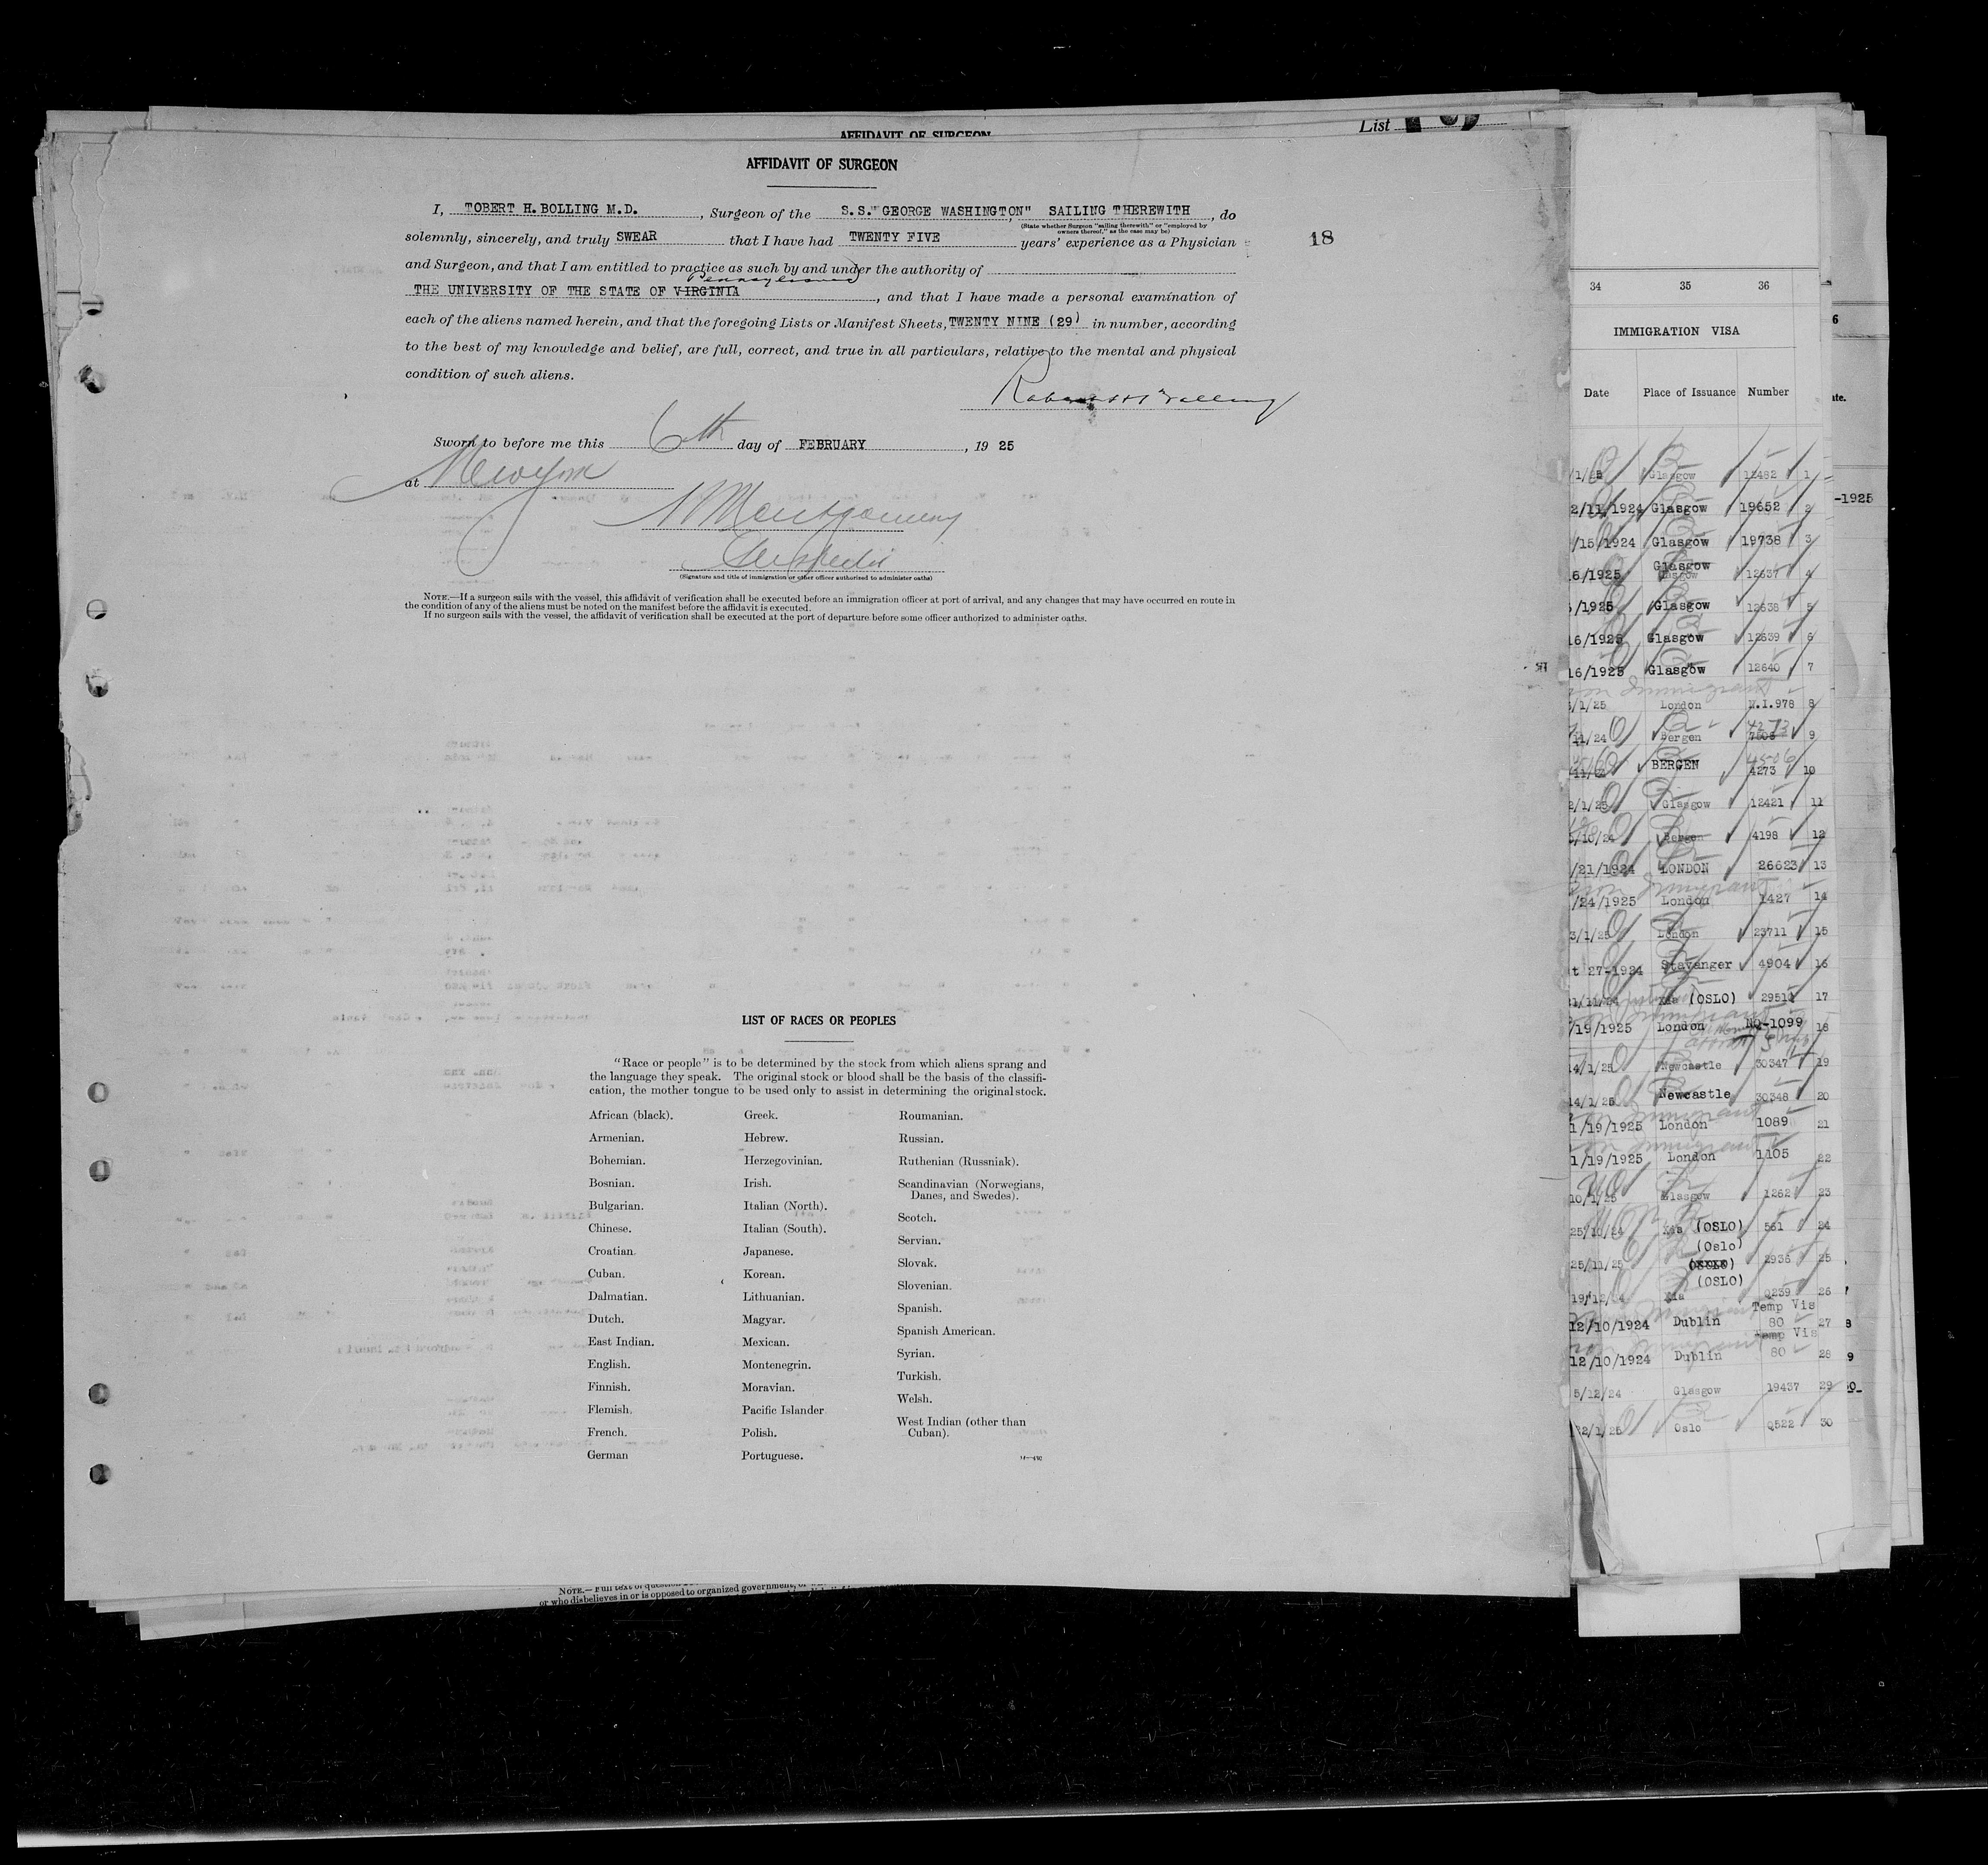 AFFIDAVIT OF SURGEON
List
AFFIDAVIT OF SURGEON
I, TOBERT H. BOLLING M.D. , Surgeon of the S.S. "GEORGE WASHINGTON" SAILING THEREWITH , do
(State whether Surgeon "sailing therewith" or "employed by owners thereof," as the case may be)
solemnly, sincerely, and truly SWEAR that I have had TWENTY FIVE years' experience as a Physician
18
and Surgeon, and that I am entitled to practice as such by and under the authority of
Pennsylvania
THE UNIVERSITY OF THE STATE OF VIRGINIA , and that I have made a personal examination of
each of the aliens named herein, and that the foregoing Lists or Manifest Sheets, TWENTY NINE (29) in number, according
to the best of my knowledge and belief, are full, correct, and true in all particulars, relative to the mental and physical
condition of such aliens.
Robert H Bolling
Sworn to before me this 6th day of FEBRUARY , 19 25
at New York
Montgomery
Inspector
(Signature and title of immigration or other officer authorized to administer oaths)
NOTE.—If a surgeon sails with the vessel, this affidavit of verification shall be executed before an immigration officer at port of arrival, and any changes that may have occurred en route in
the condition of any of the aliens must be noted on the manifest before the affidavit is executed.
If no surgeon sails with the vessel, the affidavit of verification shall be executed at the port of departure before some officer authorized to administer oaths.
LIST OF RACES OR PEOPLES
"Race or people" is to be determined by the stock from which aliens sprang and
the language they speak. The original stock or blood shall be the basis of the classifi-
cation, the mother tongue to be used only to assist in determining the original stock.
African (black).
Armenian.
Bohemian.
Bosnian.
Bulgarian.
Chinese.
Croatian.
Cuban.
Dalmatian.
Dutch.
East Indian.
English.
Finnish.
Flemish.
French.
German
Greek.
Hebrew.
Herzegovinian.
Irish.
Italian (North).
Italian (South).
Japanese.
Korean.
Lithuanian.
Magyar.
Mexican.
Montenegrin.
Moravian.
Pacific Islander
Polish.
Portuguese.
Roumanian.
Russian.
Ruthenian (Russniak).
Scandinavian (Norwegians,
Danes, and Swedes).
Scotch.
Servian.
Slovak.
Slovenian.
Spanish.
Spanish American.
Syrian.
Turkish.
Welsh.
West Indian (other than
Cuban).
or who disbelieves in or is opposed to organized government,
34 35 36
IMMIGRATION VISA
Date Place of Issuance Number
/1/25 Glasgow 12482 1
2/11/1924 Glasgow 19652 2
/15/1924 Glasgow 19738 3
Glasgow
16/1925 Glasgow 12637 4
/1925 Glasgow 12638 5
16/1925 Glasgow 12639 6
16/1925 Glasgow 12640 7
non Immigrant
/1/25 London N.I.978 8
4273
11/24 Bergen 9
4506
BERGEN 4273 10
2/1/25 Glasgow 12421 11
/10/24 Bergen 4198 12
/21/1924 LONDON 26623 13
non Immigrant
/24/1925 London 1427 14
3/1/25 London 23711 15
t 27-1924 Stavanger 4904 16
Xia (OSLO) 17
Immigrant
/19/1925 London NQ-1099 18
14/1/25 Newcastle 30347 19
14/1/25 Newcastle 30348 20
Immigrant
1/19/1925 London 1089 21
Immigrant
1/19/1925 London 1105 22
10/1/25 Glasgow 1262 23
25/10/24 Xia (OSLO) 561 24
(Oslo)
25/11/25 2936 25
(OSLO)
(OSLO)
19/12/24 Xia Q239 26
Temp Vis
12/10/1924 Dublin 80 27
Temp Vis
12/10/1924 Dublin 80 28
5/12/24 Glasgow 19437 29
22/1/25 Oslo Q522 30
6
-1925
8
9